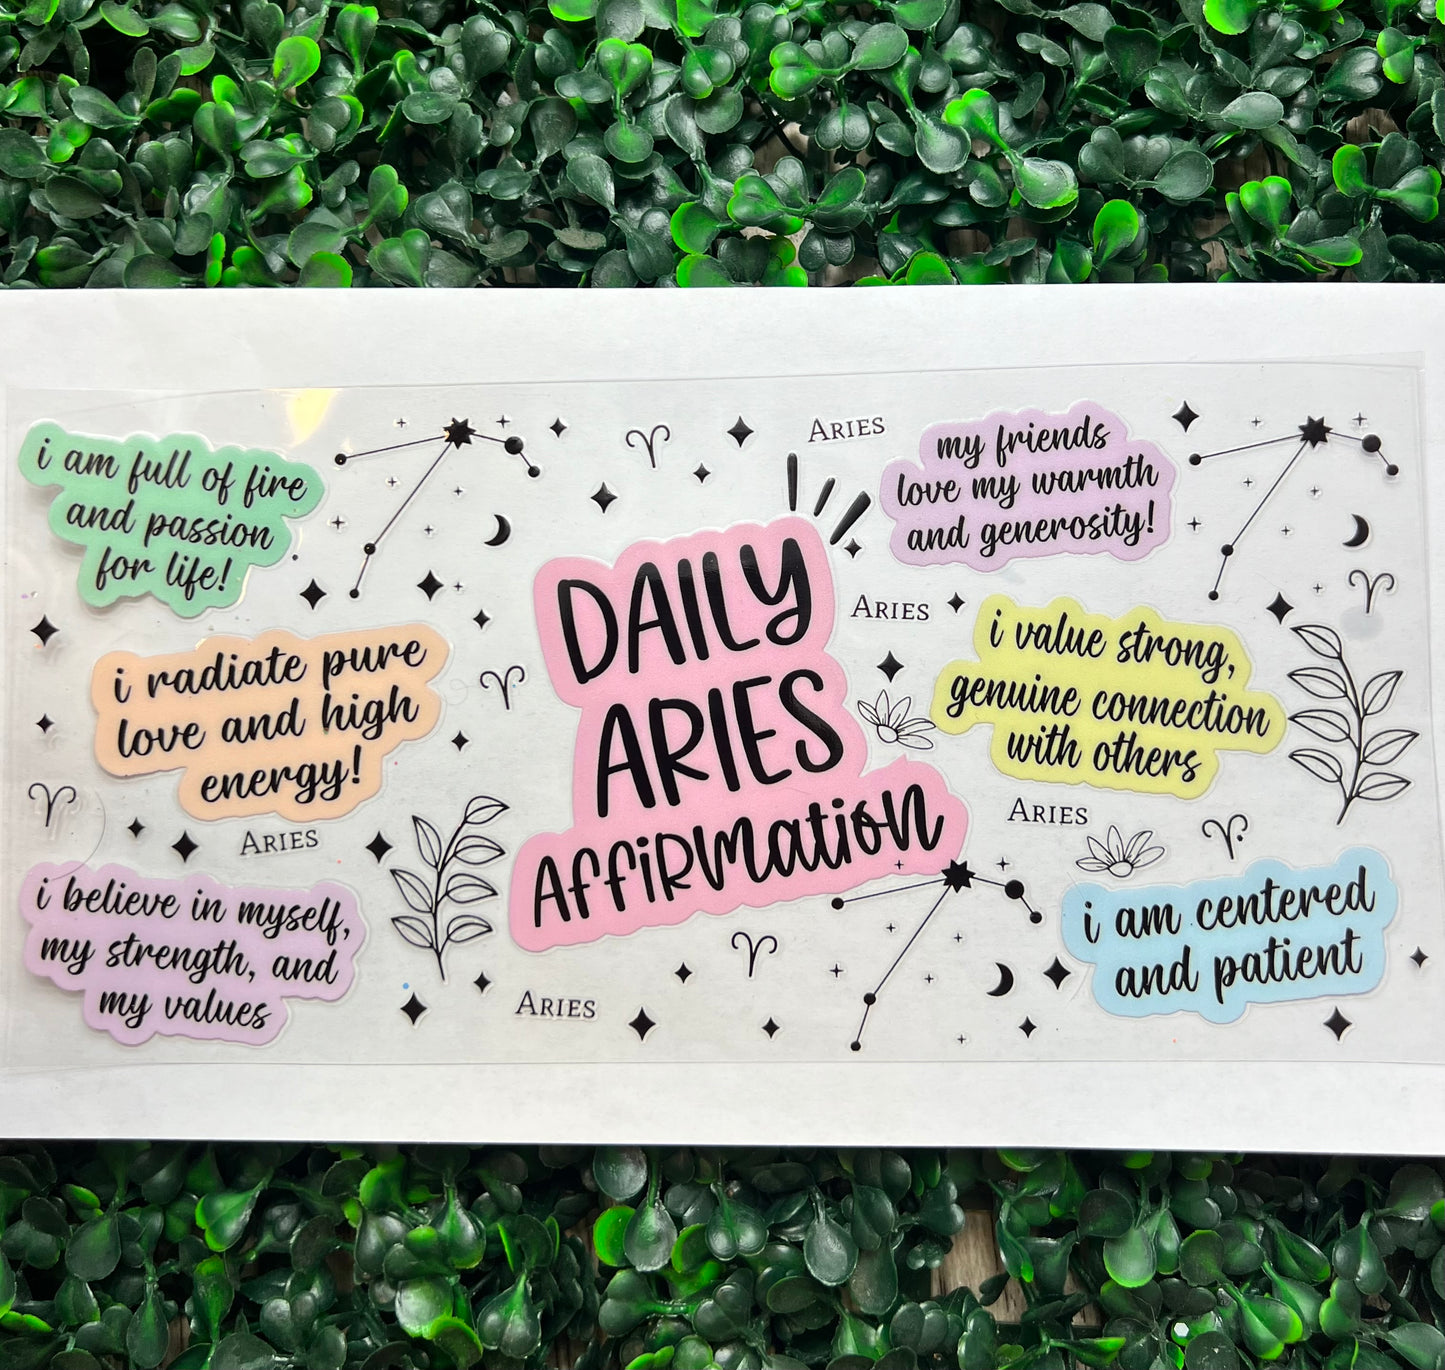 i am full of fire
and passion
for life!
i radiate pure
love and high
energy!
ARIES
i believe in myself,
my strength, and
my values
ARIES
DAILY
ARIES
AFFIRMATION
ARIES
my friends
love my warmth
and generosity!
ARIES
i value strong,
genuine connection
with others
ARIES
i am centered
and patient